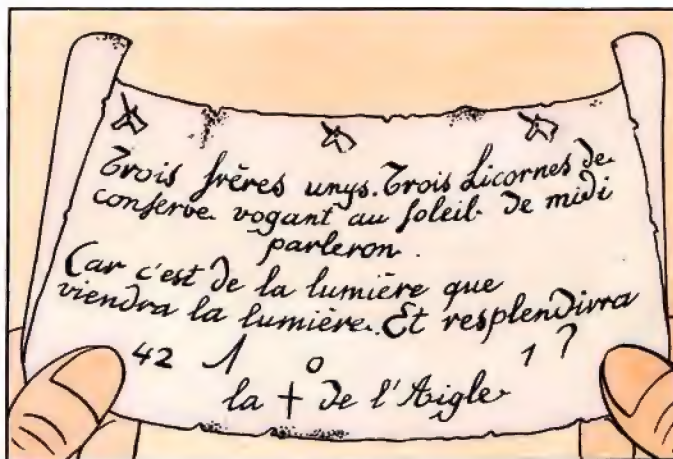 Trois frères unys. Trois Licornes de
conserve vogant au soleil de midi
parleron.
Car c'est de la lumière que
viendra la lumière. Et resplendirra
42 1 0 1 ?
la + de l'Aigle